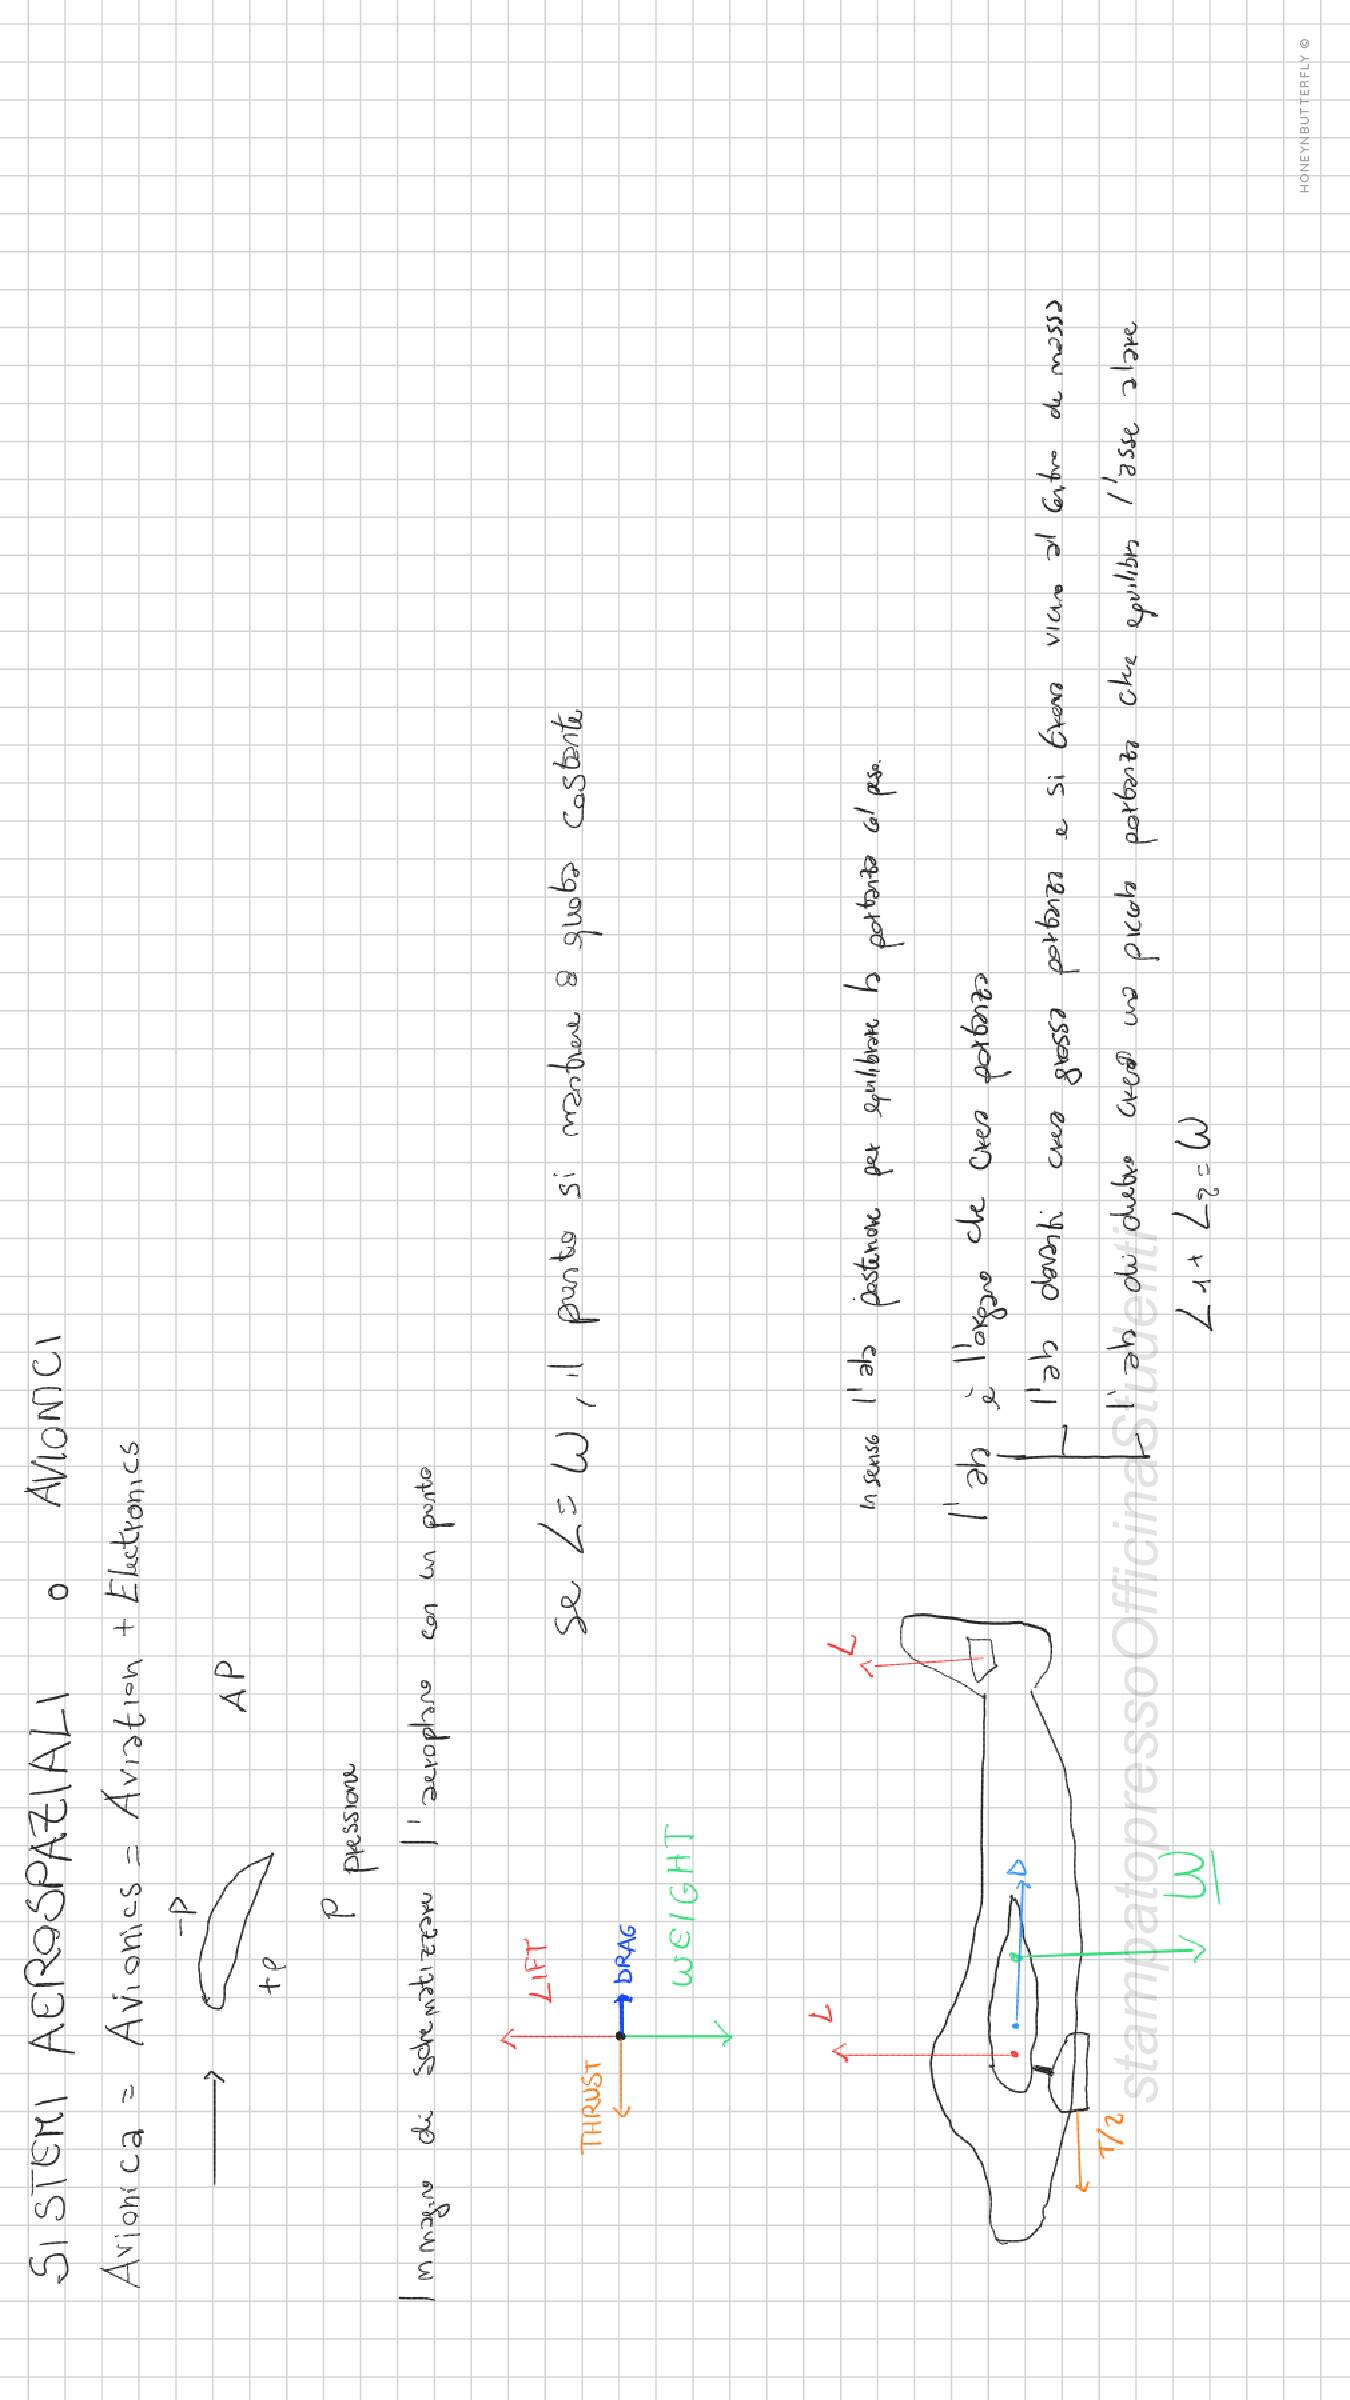 SISTEMI AEROSPAZIALI o AVIONICI
Avionica = Avionics = Aviation + Electronics
-P
+P
ΔP
P pressione
Immagino di schematizzare l'aeroplano con un punto
LIFT
THRUST
DRAG
WEIGHT
Se L = W, il punto si mantiene a quota costante
L
L
D
T/2
W
Insense l'ala posteriore per equilibrare la portanza al peso.
l'ala è l'organo che crea portanza
l'ala davanti crea grossa portanza e si trova vicino al centro di massa
l'ala di dietro crea una piccola portanza che equilibra l'asse alare
L1 + L2 = W
stampatopressoOfficinaStudenti
HONEYNBUTTERFLY ©